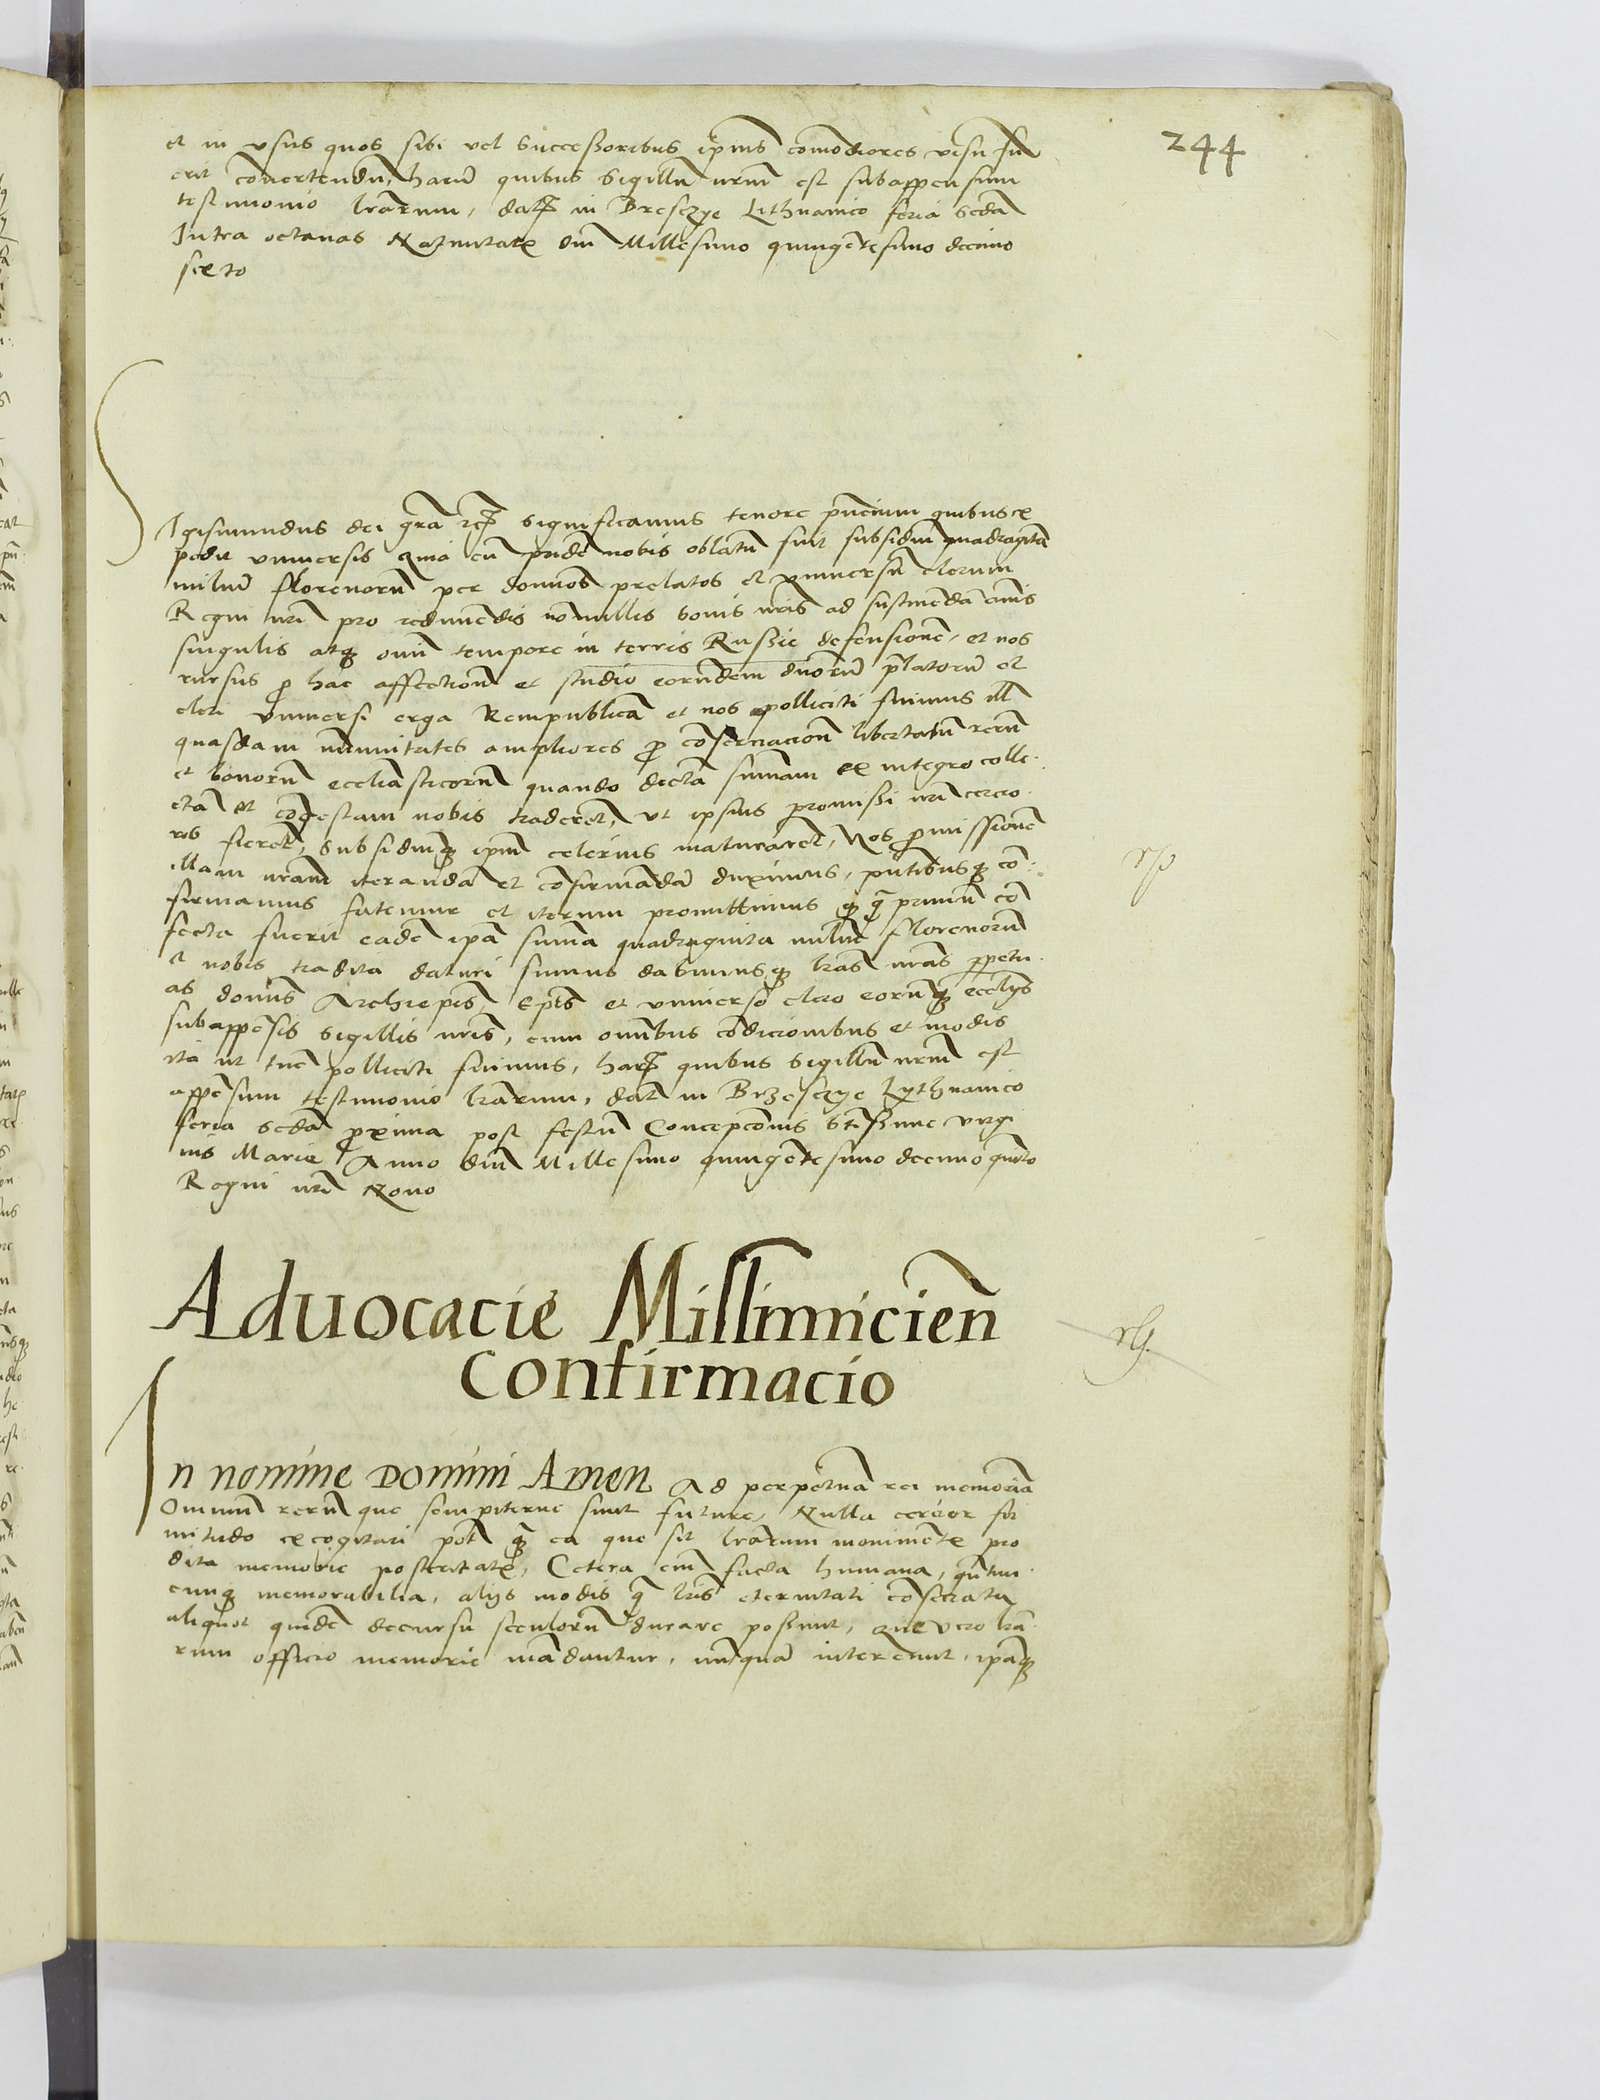 244
et in vsus quos sibi vel Successoribus ipius comodiores visu fu
erit convertendu, haru quibus Sigillu nrm est subappensum
testimonio lrarum, dat in Bresczye Lithuanico feria secda
Intra octauas Natiuitatis dni Millesimo quingetesimo decimo
sexto
Sigismundus dei gra rex Significamus tenore pncium quibus ex
pedit vniuersis quia cu pride nobis oblatu fuit subsidiu quadraginta
miliu florenoru per domnos prelatos et vniuersu clerum
Regni nri pro redimedis nonnullis bonis nris ad sustinenda
singulis atq omni tempore in terris Russie defensione, et nos
rursus p hac affectione et studio eorundem dnoru platoru et
cleri vniuersi erga Rempublica et nos polliciti fuimus ill
quasdam immunitates ampliores p coseruacione libertatu reru
et bonoru eccliasticoru quando dicta summam ex integro colle
cta et cogestam nobis traderet, vt ipsius promissi nri cercio
res fieret, subsidiuq ipm celerius maturaret, Nos pmissione
rp
illam nram iteranda et cofirmada duximus, pntibusq co
firmamus fatemur et iterum promittimus q q primu co
fecta fuerit eade ipa suma quadraginta miliu florenoru
et nobis tradita daturi sumus dabimusq lras nras ppetu
as domis Archiepis, Epis et vniuerso clero eoruq ecclijs
subappesis sigillis nris, cum omnibus codicionibus et modis
ita ut tuc polliciti fuimus, haru quibus sigillu nrm est
appesum testimonio lrarum, dat in Brzesczye Lythuanico
feria secda pxima post festu Concepcionis Stissime virgi
nis Marie Anno dni Millesimo quingetesimo decimo quinto
Regni nri Nono
Aduocacie Millimicien
rG.
Confirmacio
In nomine Domini Amen Ad perpetua rei memoria
Omniu reru que sempiterne sint future, Nulla cercior fir
mitudo excogitari pot q ea que sit lrarum monimetis pro
dita memorie posteritatis, Cetera eni facta humana, quntum
cunq memorabilia, alijs modis q lris eternitati cosecrata
aliquot quide decursu seculoru durare possunt, que vero lra
rum officio memorie madantur, nunqua interenit, ipaq